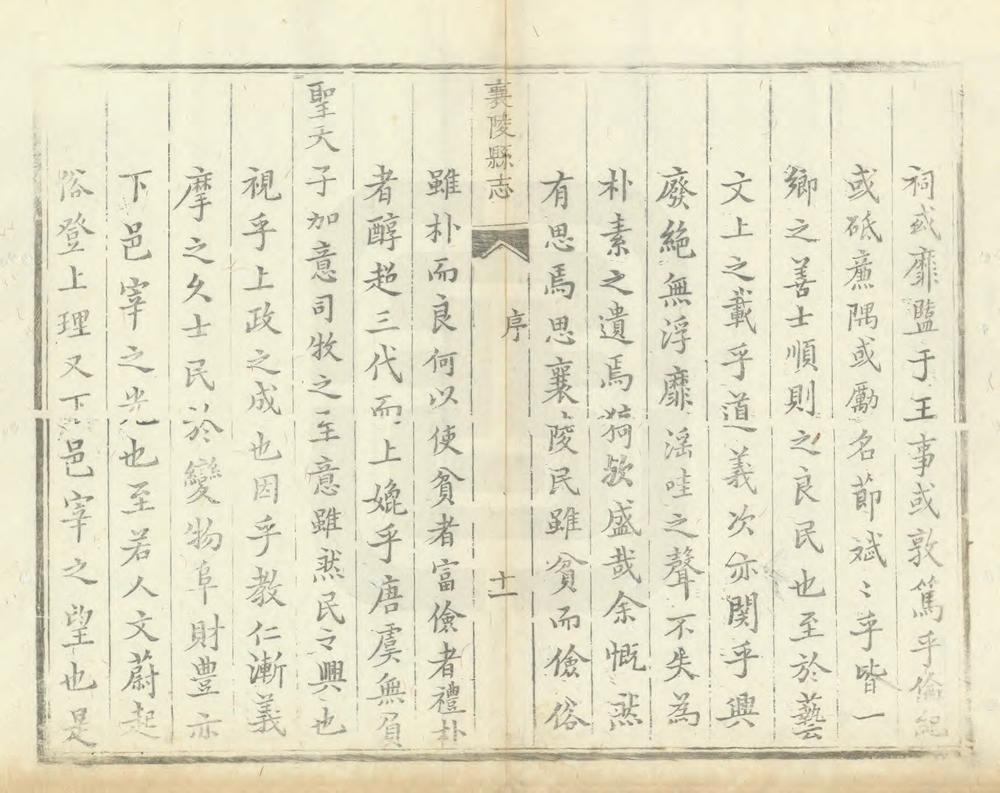 祠或靡盬于王事或敦篤乎倫紀
或砥㢘隅或勵名節斌〻乎皆一
鄉之善士順則之良民也至於藝
文上之載乎道義次亦関乎興
廢絶無浮靡淫哇之聲不失為
朴素之遺焉猗歟盛哉余慨然
有思焉思襄陵民雖貧而儉俗
襄陵縣志
序
十一
雖朴而良何以使貧者富儉者禮朴
者醇超三代而上媲乎唐虞無負
聖天子加意司牧之至意雖然民之興也
視乎上政之成也因乎教仁漸義
摩之久士民於變物阜財豊亦
下邑宰之光也至若人文蔚起
俗登上理又下邑宰之望也是